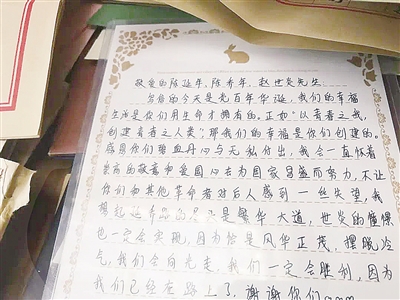 敬爱的陈延年、陈乔年、赵世炎先生
今天是党百年华诞，我们的幸福
生活是你们用生命才拥有的。正如"以青春之我，
创建青春之人类"，那我们的幸福是你们创建的。
感恩你们碧血丹心与无私付出，我会一直怀着
崇高的敬意和爱国心去为国家昌盛而努力，不让
你们和其他革命者对后人感到一丝失望，我
想延乔路的尽头是繁华大道，世炎的憧憬
也一定会实现，因为恰是风华正茂，摆脱冷
气，我们会向光走，我们一定会胜利，因为
我们已经在路上了，谢谢你们